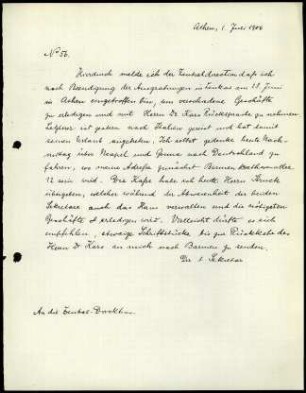 Athen, 1. Juli 1908
No 56.
Hierdurch melde ich der Zentraldirection daß ich
nach Beendigung der Ausgrabungen in Leukas am 28. Juni
in Athen eingetroffen bin, um verschiedene Geschäfte
zu erledigen und mit Herrn Dr Karo Rücksprache zu nehmen.
Letzterer ist gestern nach Italien gereist und hat damit
seinen Urlaub angetreten. Ich selbst gedenke heute Nach-
mittag über Neapel und Genua nach Deutschland zu
fahren, wo meine Adresse zunächst: Barmen
12 sein wird. Die Kasse habe ich heute Herrn Struck
übergeben, welcher während der Abwesenheit der beiden
Sekretare auch das Haus verwalten und die nötigsten
Geschäfte erledigen wird. Vielleicht dürfte es sich
empfehlen, etwaige Schriftstücke bis zur Rückkehr des
Herrn Dr Karo an mich nach Barmen zu senden.
Der 1. Sekretar
An die Zentral-Direktion